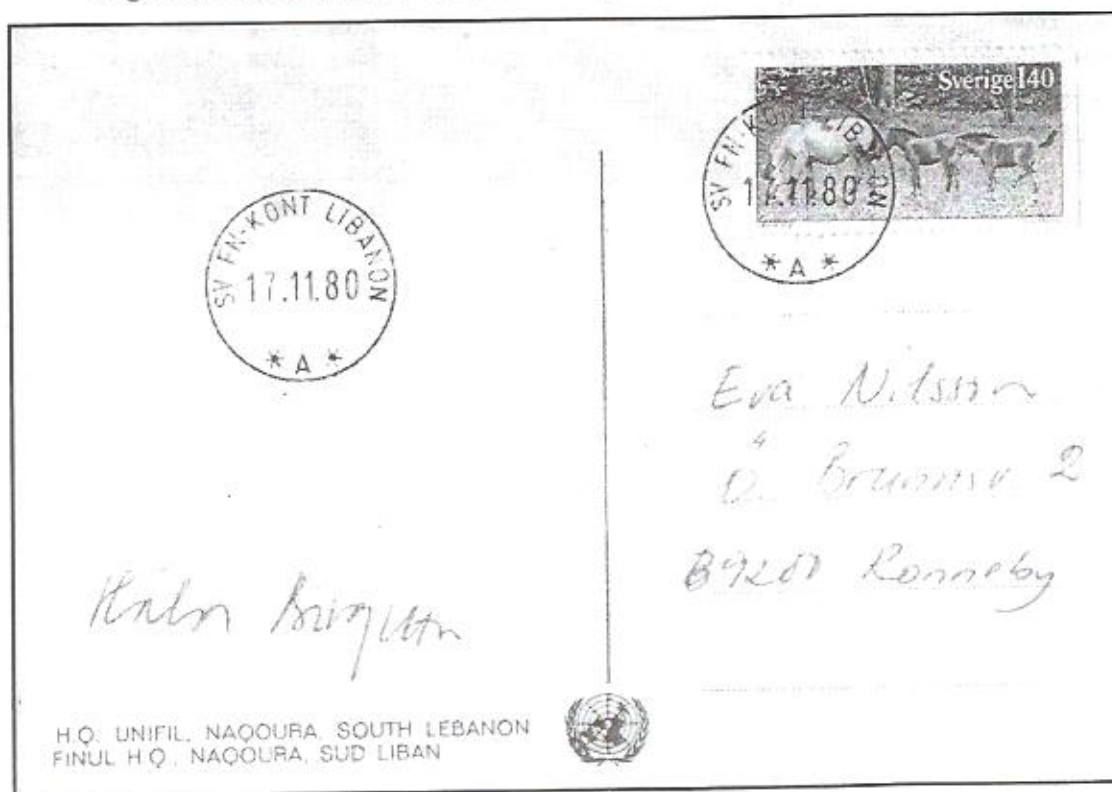 Sverige 140
SV FN-KONT LIBANON
17.11.80
* A *
SV FN-KONT LIBANON
17.11.80
* A *
Eva Nilsson
Ö. Brunnsv 2
Ronneby
Birgitta
H.Q. UNIFIL, NAQOURA, SOUTH LEBANON
FINUL H.Q., NAQOURA, SUD LIBAN